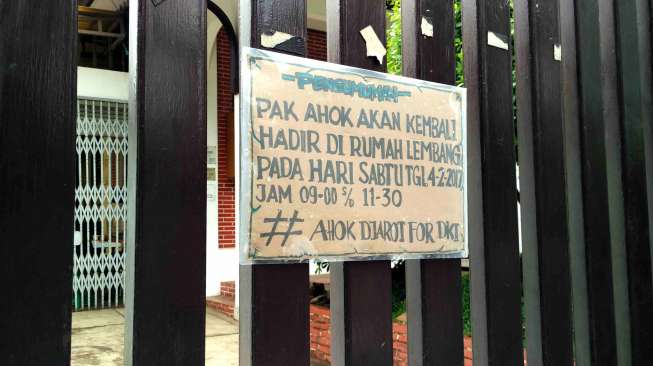 PENGUMUMAN
PAK AHOK AKAN KEMBALI
HADIR DI RUMAH LEMBANG
PADA HARI SABTU TGL 4-2-2017
JAM 09-00 S/D 11-30
# AHOK DJAROT FOR DKI